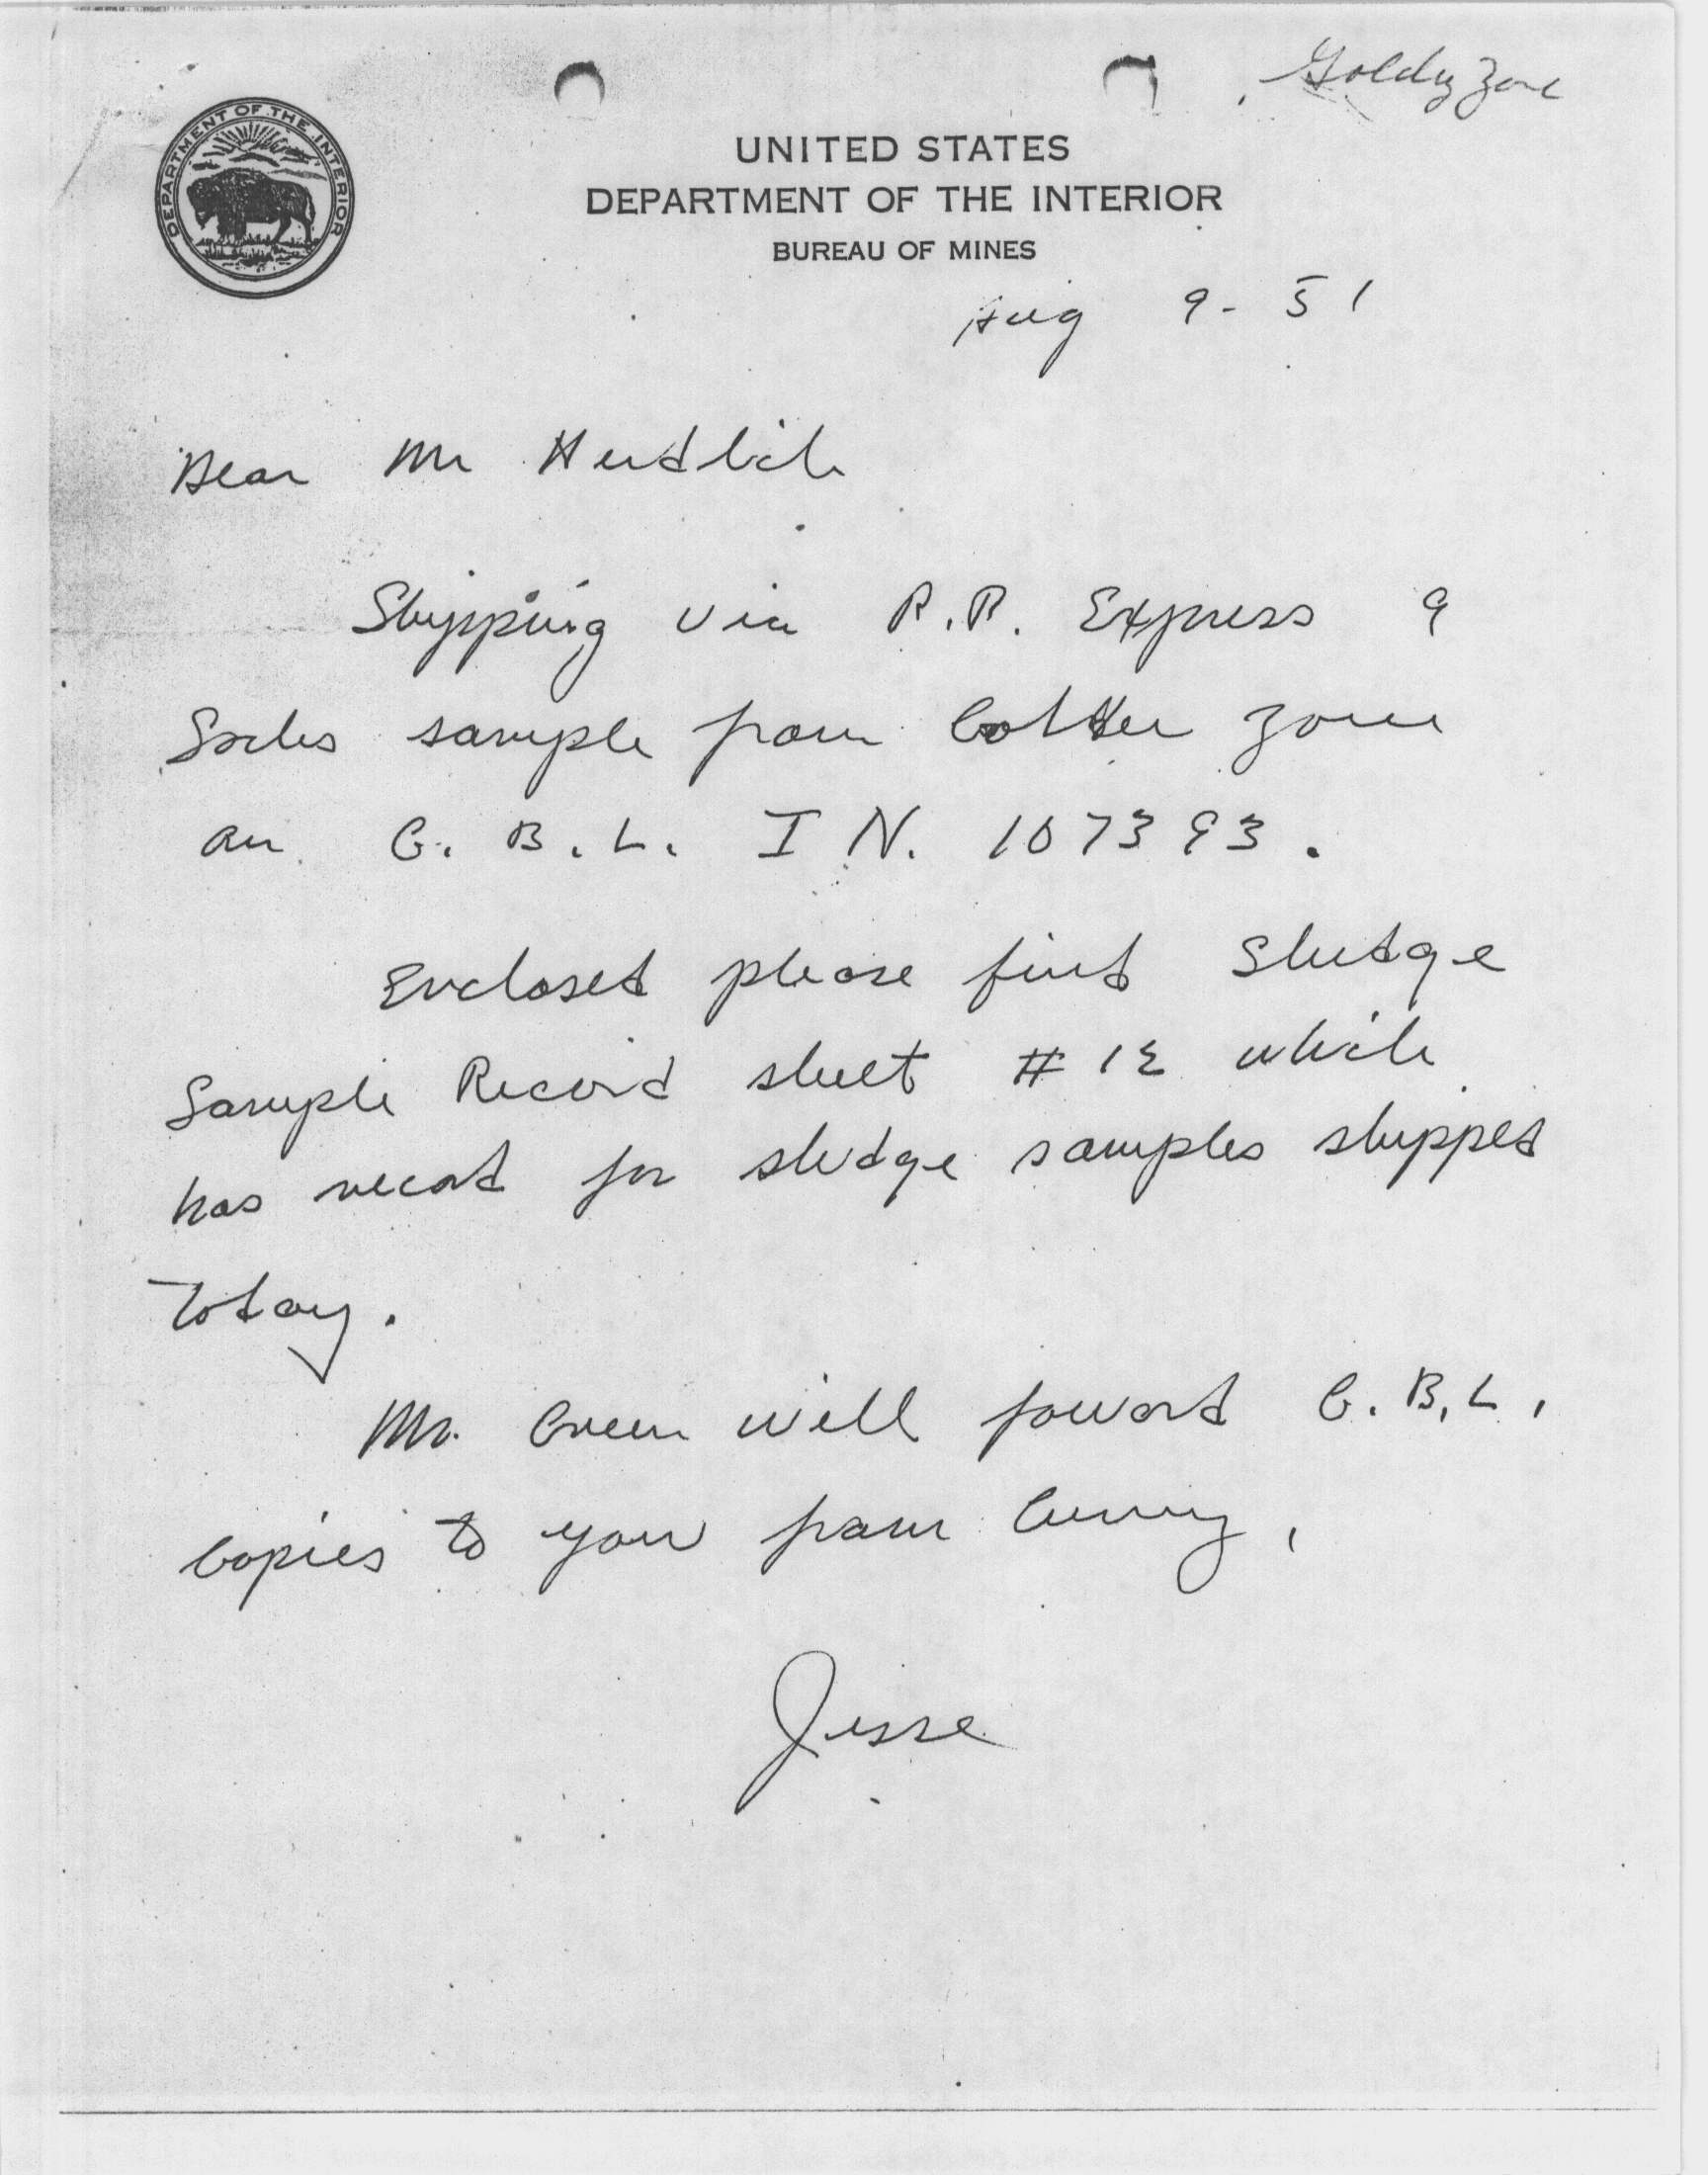 Goldy Zone
DEPARTMENT OF THE INTERIOR
UNITED STATES
DEPARTMENT OF THE INTERIOR
BUREAU OF MINES
Aug 9-51
Dear Mr
Shipping via R.R. Express 9
Sacks sample from zone
on G.B.L. I N. 107393.
Enclosed please find Sludge
Sample Record sheet #12 which
has record for sludge samples shipped
Today.
Mr. Green will foward G.B.L.
Copies to you from
Jesse